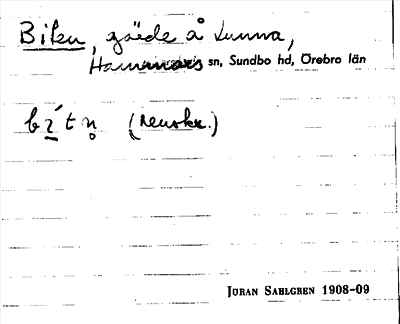 Biten, gärde å Lunna,
Hammars sn, Sundbo hd, Örebro län
bi̱´tn̥ (neutr.)
JÖRAN SAHLGREN 1908-09